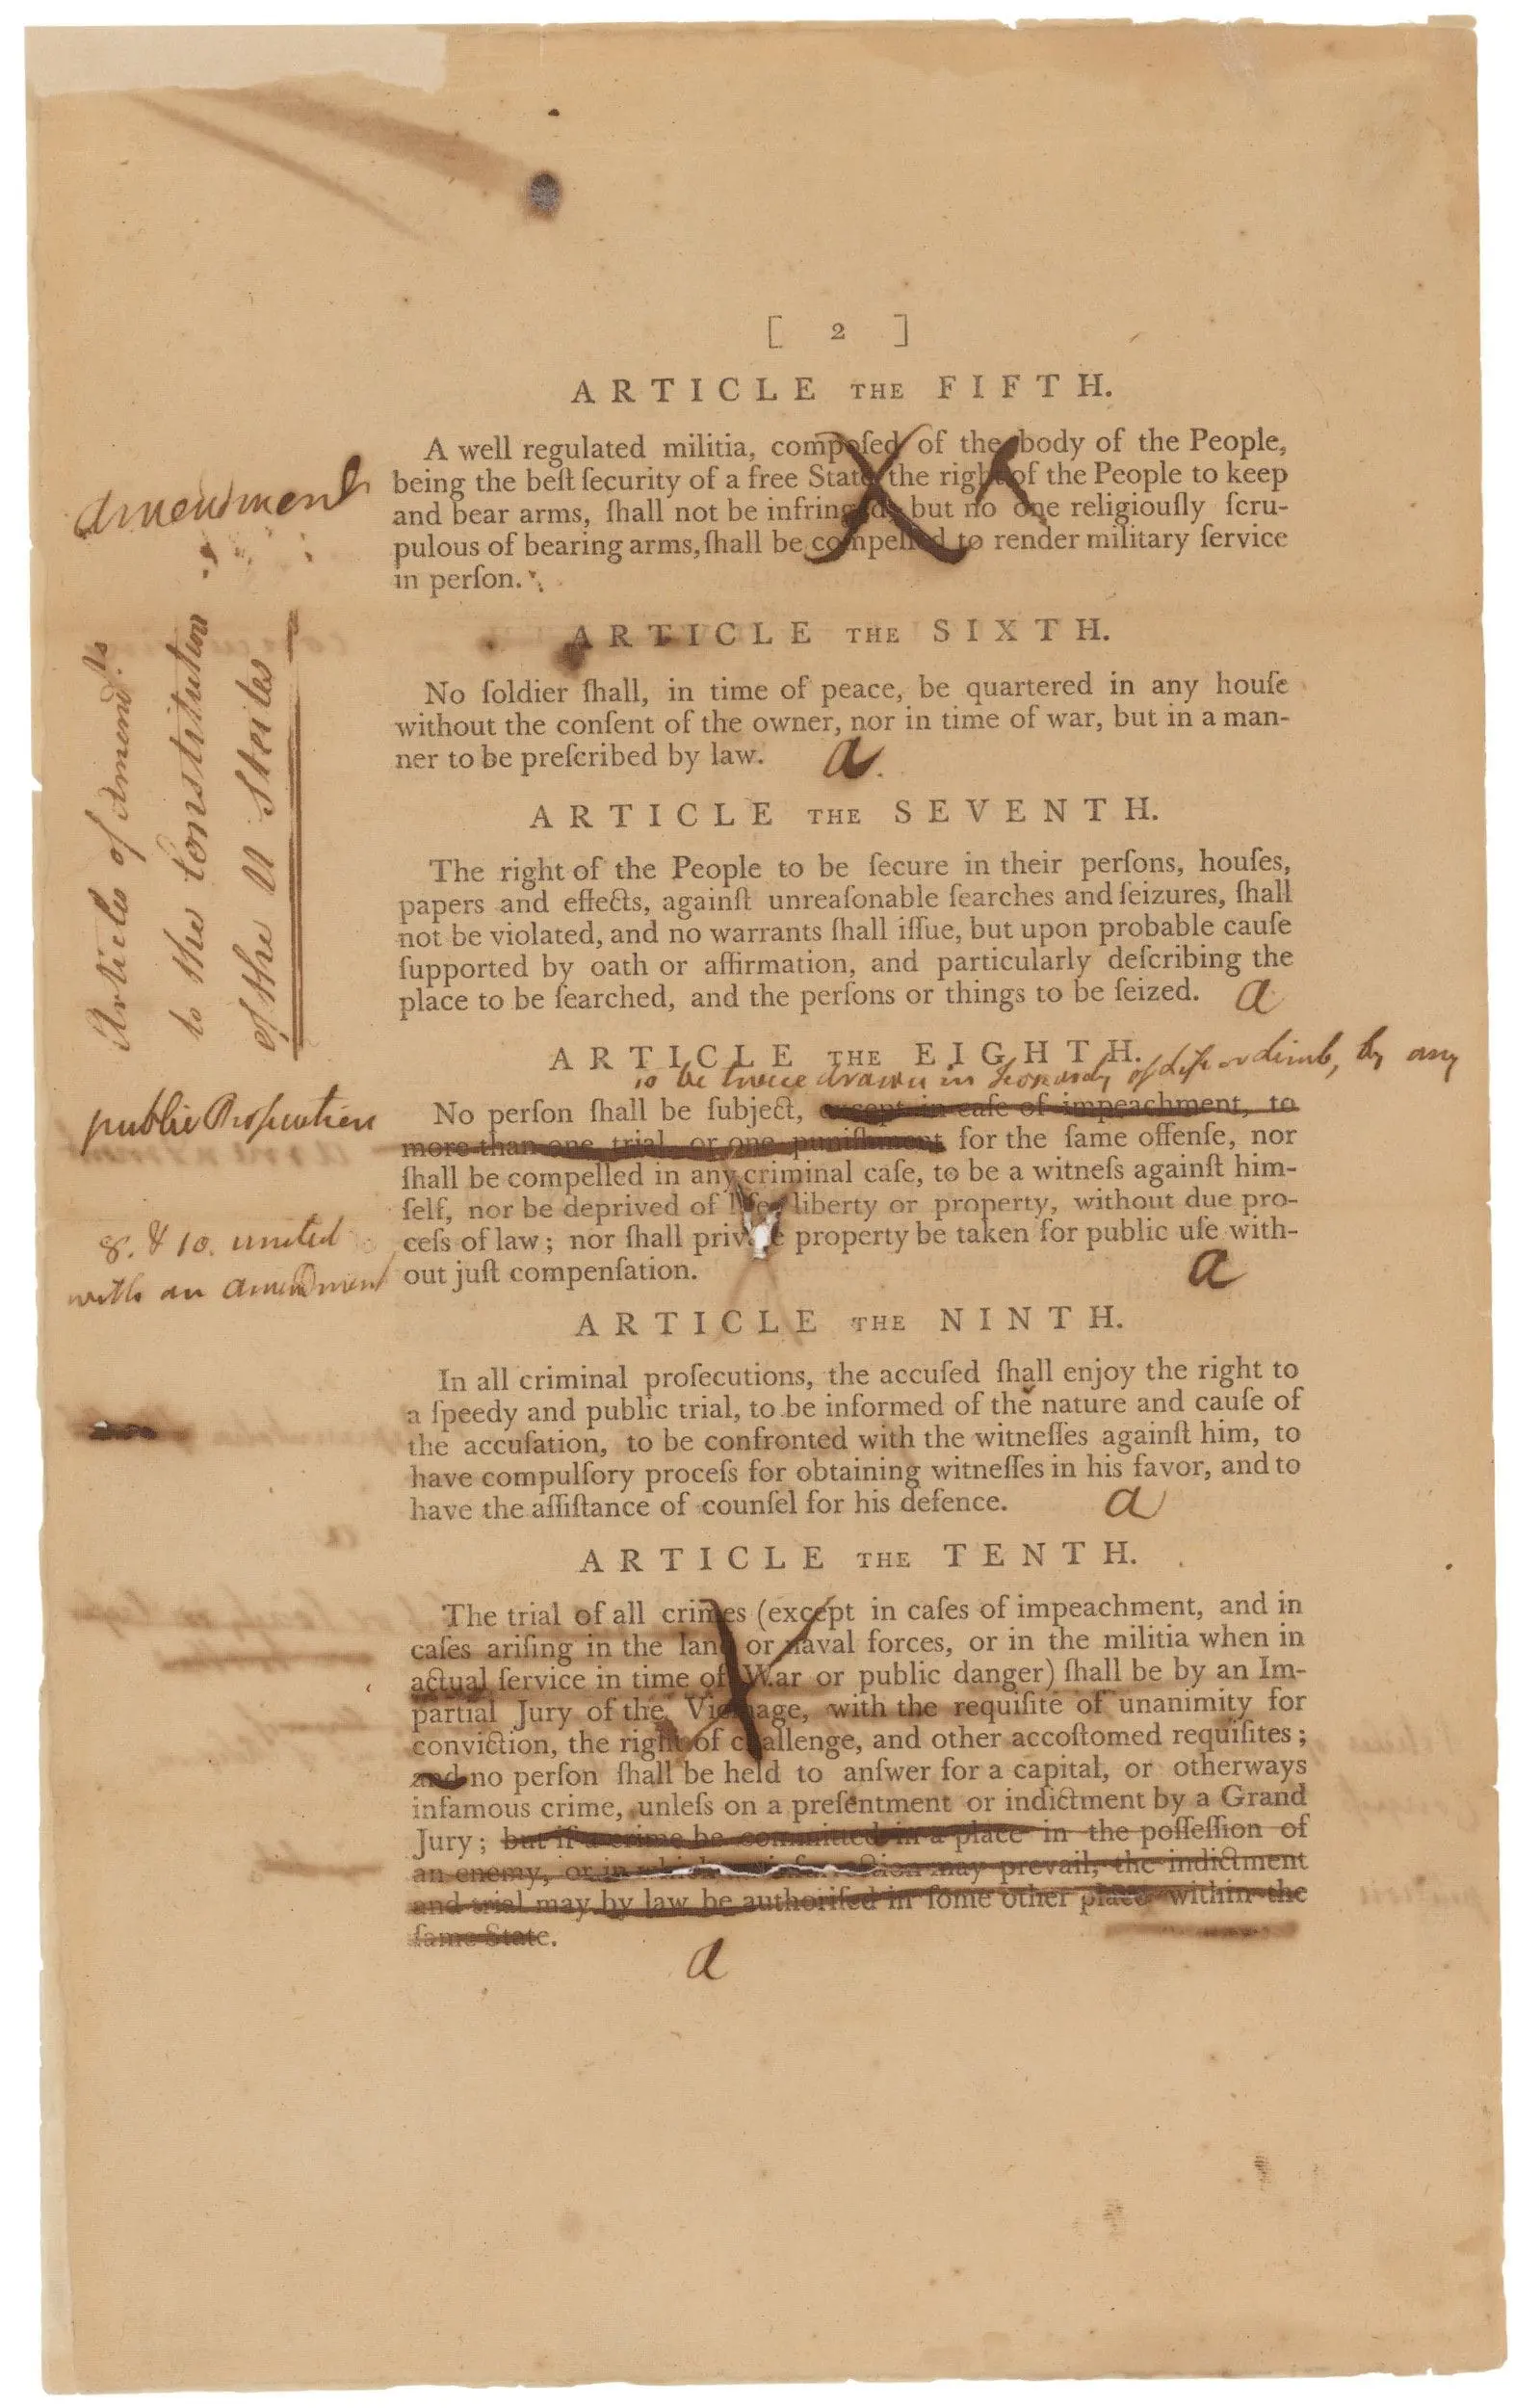 [ 2 ]
ARTICLE THE FIFTH.
A well regulated militia, compoſed of the body of the People,
being the beſt ſecurity of a free State, the right of the People to keep
and bear arms, ſhall not be infringed, but no one religiouſly ſcru-
pulous of bearing arms, ſhall be compelled to render military ſervice
in perſon.
amendment
ARTICLE THE SIXTH.
No ſoldier ſhall, in time of peace, be quartered in any houſe
without the conſent of the owner, nor in time of war, but in a man-
ner to be preſcribed by law. a.
Articles of amendts
to the Constitution
of the U States
ARTICLE THE SEVENTH.
The right of the People to be ſecure in their perſons, houſes,
papers and effects, againſt unreaſonable ſearches and ſeizures, ſhall
not be violated, and no warrants ſhall iſſue, but upon probable cauſe
ſupported by oath or affirmation, and particularly deſcribing the
place to be ſearched, and the perſons or things to be ſeized. a
ARTICLE THE EIGHTH.
to be twice drawn in Jeopardy of life or limb, by any
public Prosecution
No perſon ſhall be ſubject, except in caſe of impeachment, to
more than one trial or one puniſhment for the ſame offenſe, nor
ſhall be compelled in any criminal caſe, to be a witneſs againſt him-
ſelf, nor be deprived of life, liberty or property, without due pro-
ceſs of law; nor ſhall private property be taken for public uſe with-
out juſt compenſation. a
8. & 10. united
with an amendment
ARTICLE THE NINTH.
In all criminal proſecutions, the accuſed ſhall enjoy the right to
a ſpeedy and public trial, to be informed of the nature and cauſe of
the accuſation, to be confronted with the witneſſes againſt him, to
have compulſory proceſs for obtaining witneſſes in his favor, and to
have the aſſiſtance of counſel for his defence. a
ARTICLE THE TENTH.
The trial of all crimes (except in caſes of impeachment, and in
caſes ariſing in the land or naval forces, or in the militia when in
actual ſervice in time of War or public danger) ſhall be by an Im-
partial Jury of the Vicinage, with the requiſite of unanimity for
conviction, the right of challenge, and other accoſtomed requiſites;
and no perſon ſhall be held to anſwer for a capital, or otherways
infamous crime, unleſs on a preſentment or indictment by a Grand
Jury; but if a crime be committed in a place in the poſſeſſion of
an enemy, or in which an inſurrection may prevail, the indictment
and trial may by law be authoriſed in ſome other place within the
ſame State.
a